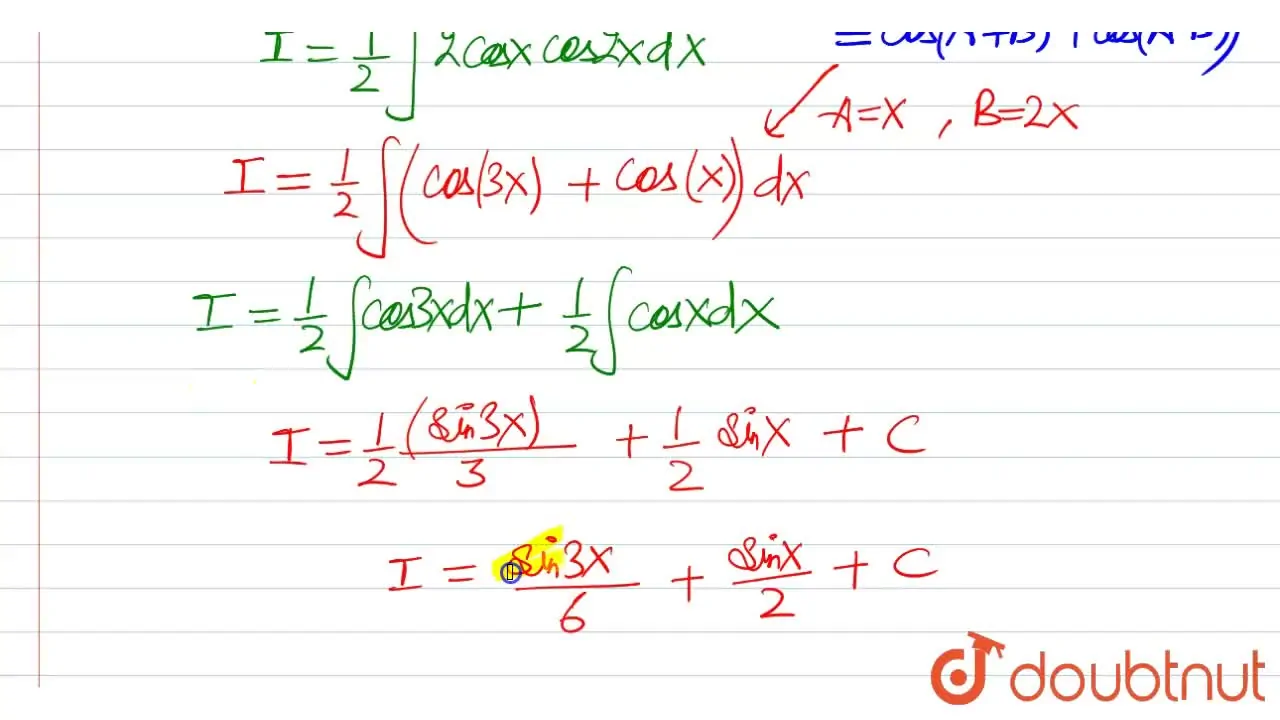 I = 1/2 ∫ 2cosx cos2x dx
= cos(A+B) + cos(A-B)
A=x , B=2x
I = 1/2 ∫ (cos(3x) + cos(x)) dx
I = 1/2 ∫ cos3xdx + 1/2 ∫ cosxdx
I = 1/2 (sin3x)/3 + 1/2 sinx + C
I = sin3x/6 + sinx/2 + C
doubtnut